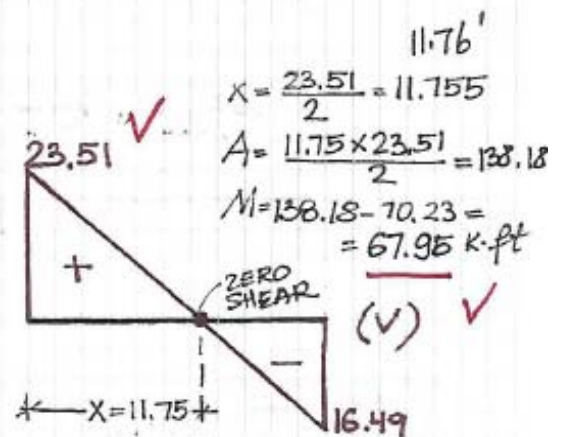 11.76'
X = 23.51 / 2 = 11.755
23.51 ✓
A = 11.75 × 23.51 / 2 = 138.18
M = 138.18 - 70.23 =
= 67.95 K·ft
+
ZERO
SHEAR
(V) ✓
−
X = 11.75
16.49